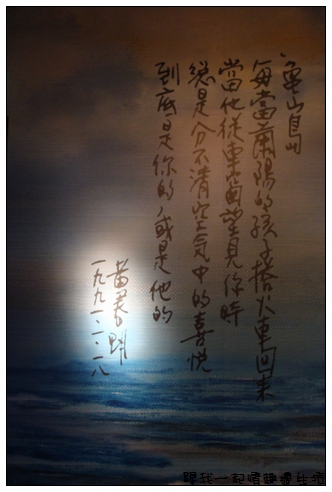 龜山島
每當蘭陽的孩子搭火車回來
當他從車窗望見你時
總是分不清空氣中的喜悅
到底是你的，或是他的
黃春明
一九九一、二、一八
跟我一起慢遊漫生活